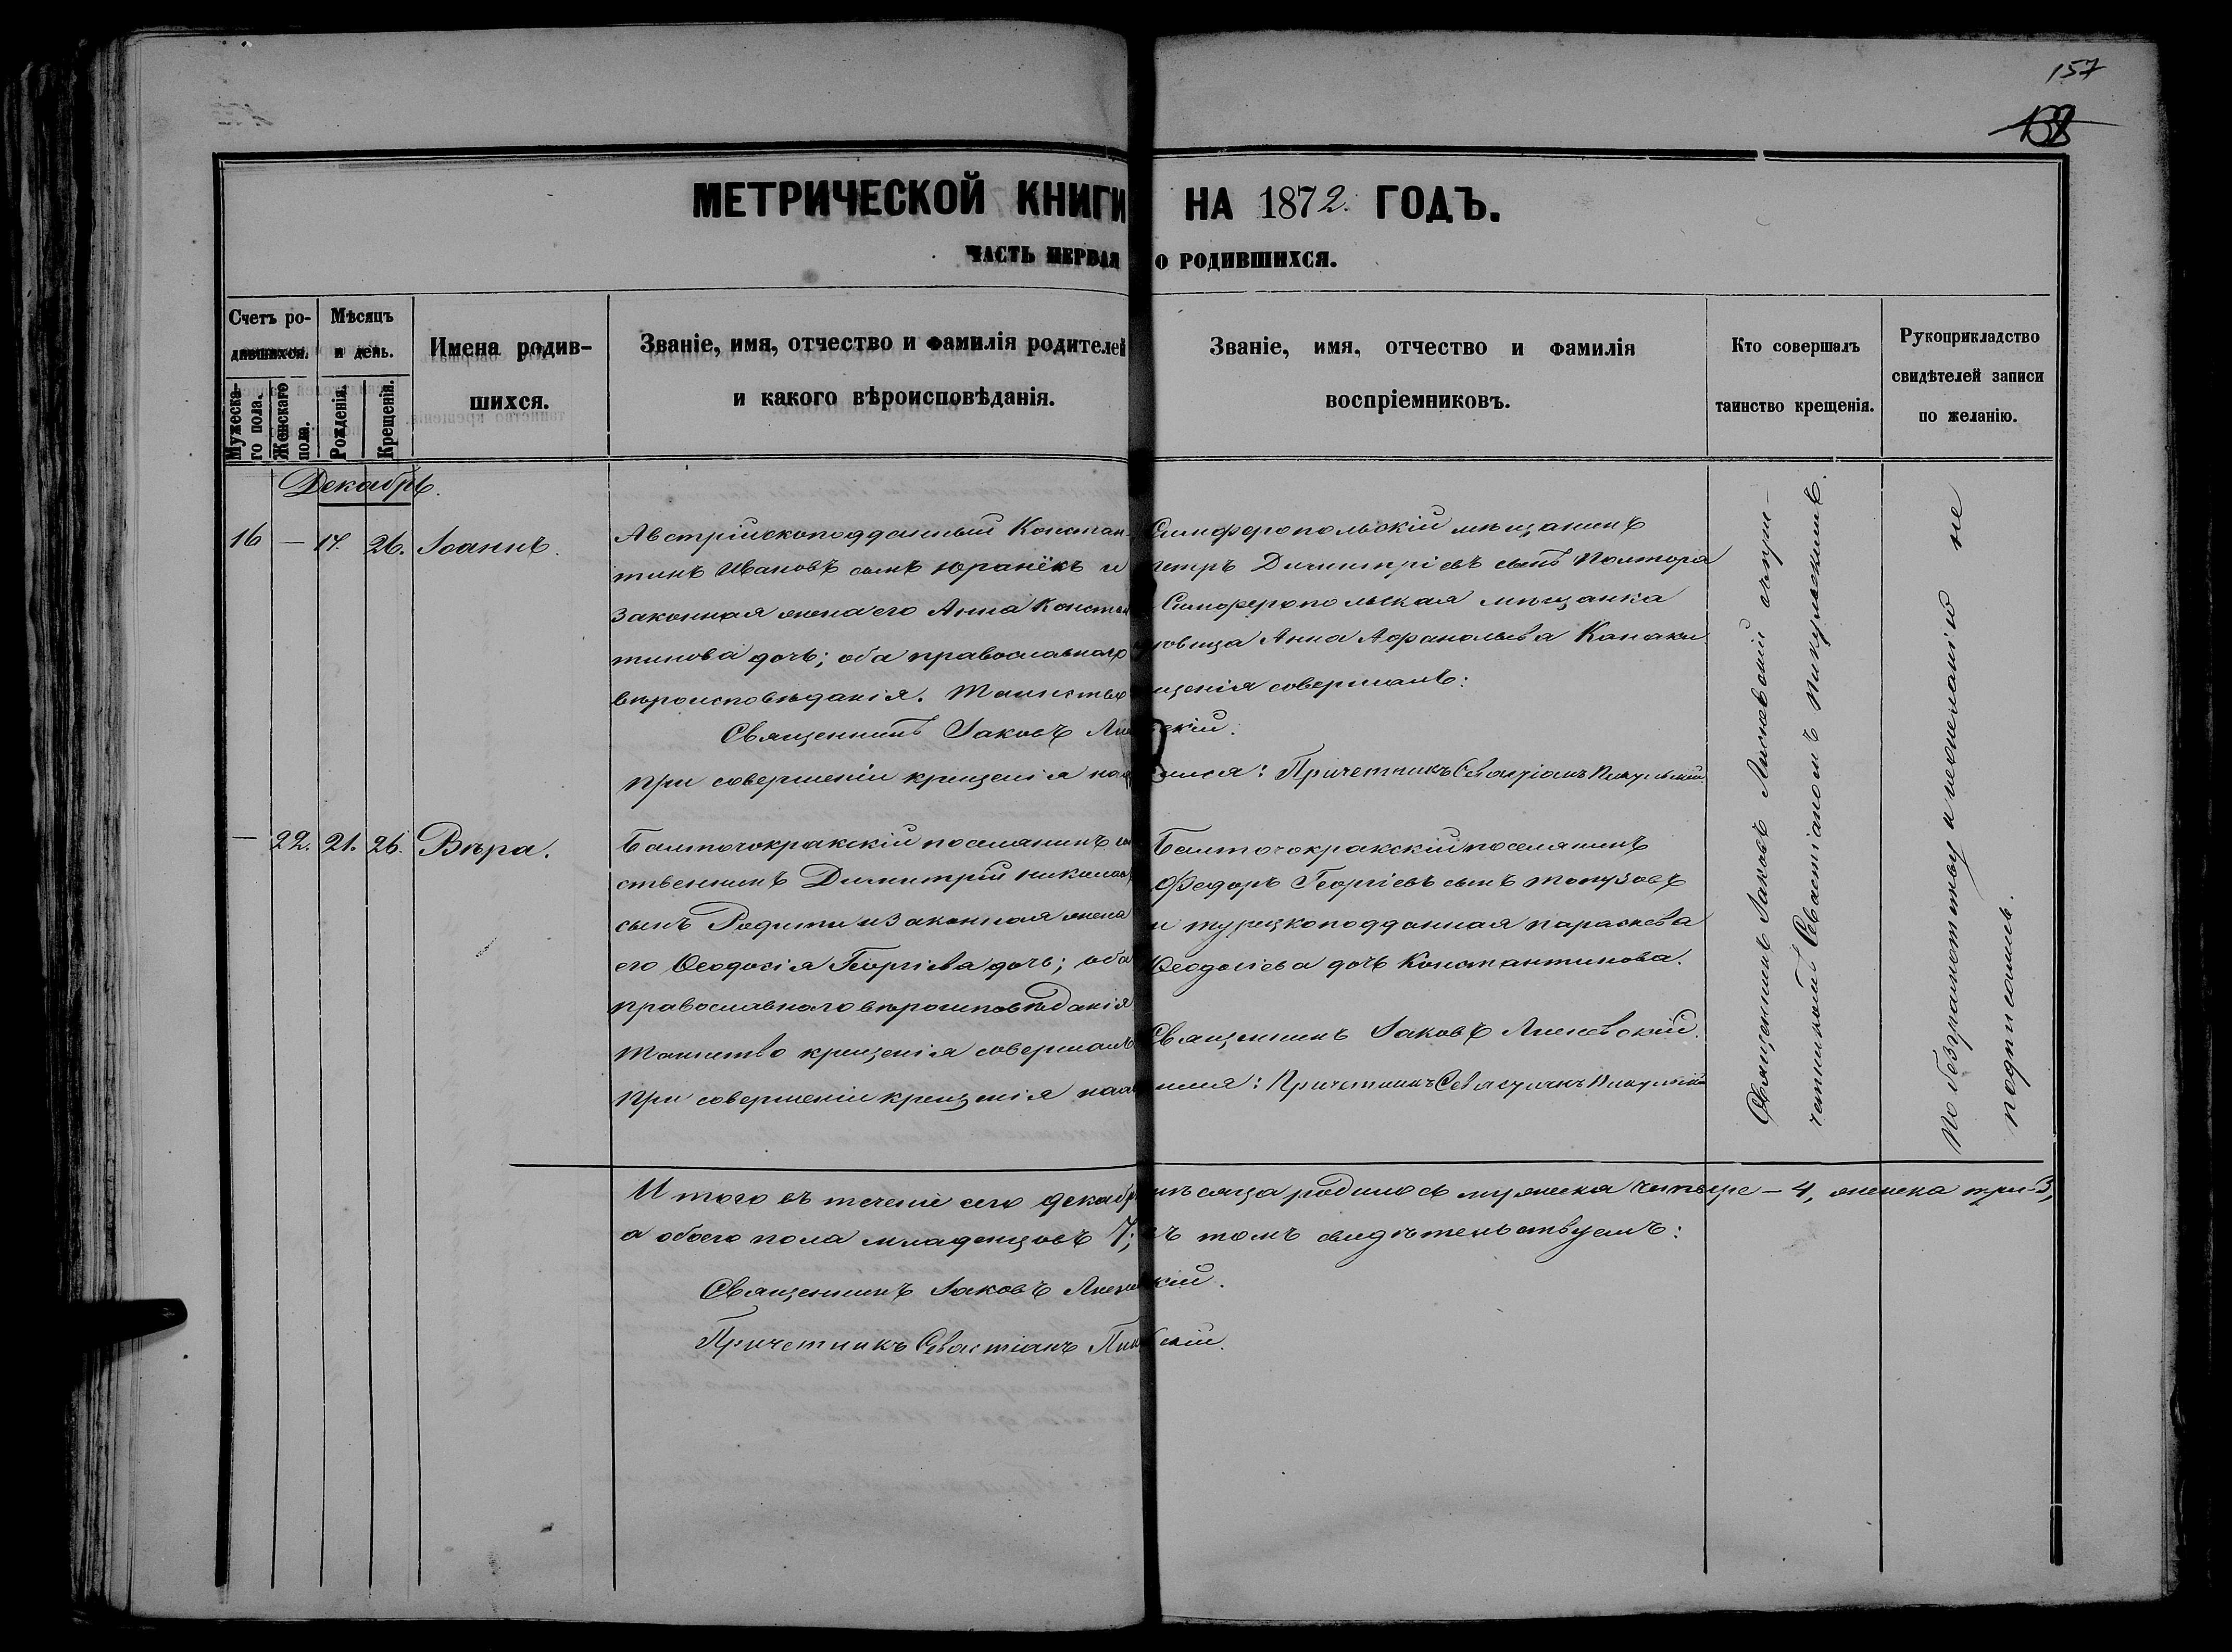 157
138
МЕТРИЧЕСКОЙ КНИГИ НА 1872. ГОДЪ.
ЧАСТЬ ПЕРВАЯ О РОДИВШИХСЯ.
Счетъ ро-
дившихся.
Мужеска-
го пола.
Женскаго
пола.
Мѣсяцъ
и день.
Рожденія.
Крещенія.
Имена родив-
шихся.
Званіе, имя, отчество и фамилія родителей
и какого вѣроисповѣданія.
Званіе, имя, отчество и фамилія
воспріемниковъ.
Кто совершалъ
таинство крещенія.
Рукоприкладство
свидѣтелей записи
по желанію.
Декабрь.
16 — 17. 26. Іоаннъ.
Австрійскоподданный Констан-
тинъ Ивановъ сынъ Юранёкъ и
законная жена его Анна Констан
тинова дочь; оба православнаго
вѣроисповѣданія. Таинство
Симферопольскій мѣщанинъ
Петръ Димитріевъ сынъ Полтора
Симферопольская мѣщанка
Анна Афанасьева Канаки
щенія совершалъ:
Священникъ Іаковъ скій.
При совершеніи крещенія ился: Причетникъ Севастіанъ
— 22. 21. 26. Вѣра.
поселянинъ
ственникъ Димитрій
сынъ Родити и законная жена
его Ѳеодосія Георгіева дочь; оба
православнаго вѣроисповѣданія
Таинство крещенія совершалъ
поселянинъ
Федоръ Георгіевъ сынъ Топузовъ
и турецкоподданная Параскева
Ѳеодосіева дочь Константинова.
Священникъ Іаковъ Лисневскій.
При совершеніи крещенія ился: Причетникъ Севастіанъ
Священникъ Іаковъ Лисневскій съ при-
четникомъ Севастіаномъ Пикульскимъ.
По безграмотству и нежеланію не
подписались.
Итого въ теченіе сего декабря мѣсяца родилось мужеска четыре – 4, женска три – 3,
а обоего пола младенцовъ 7; въ томъ свидѣтельствуемъ:
Священникъ Іаковъ скій.
Причетникъ Севастіанъ скій.